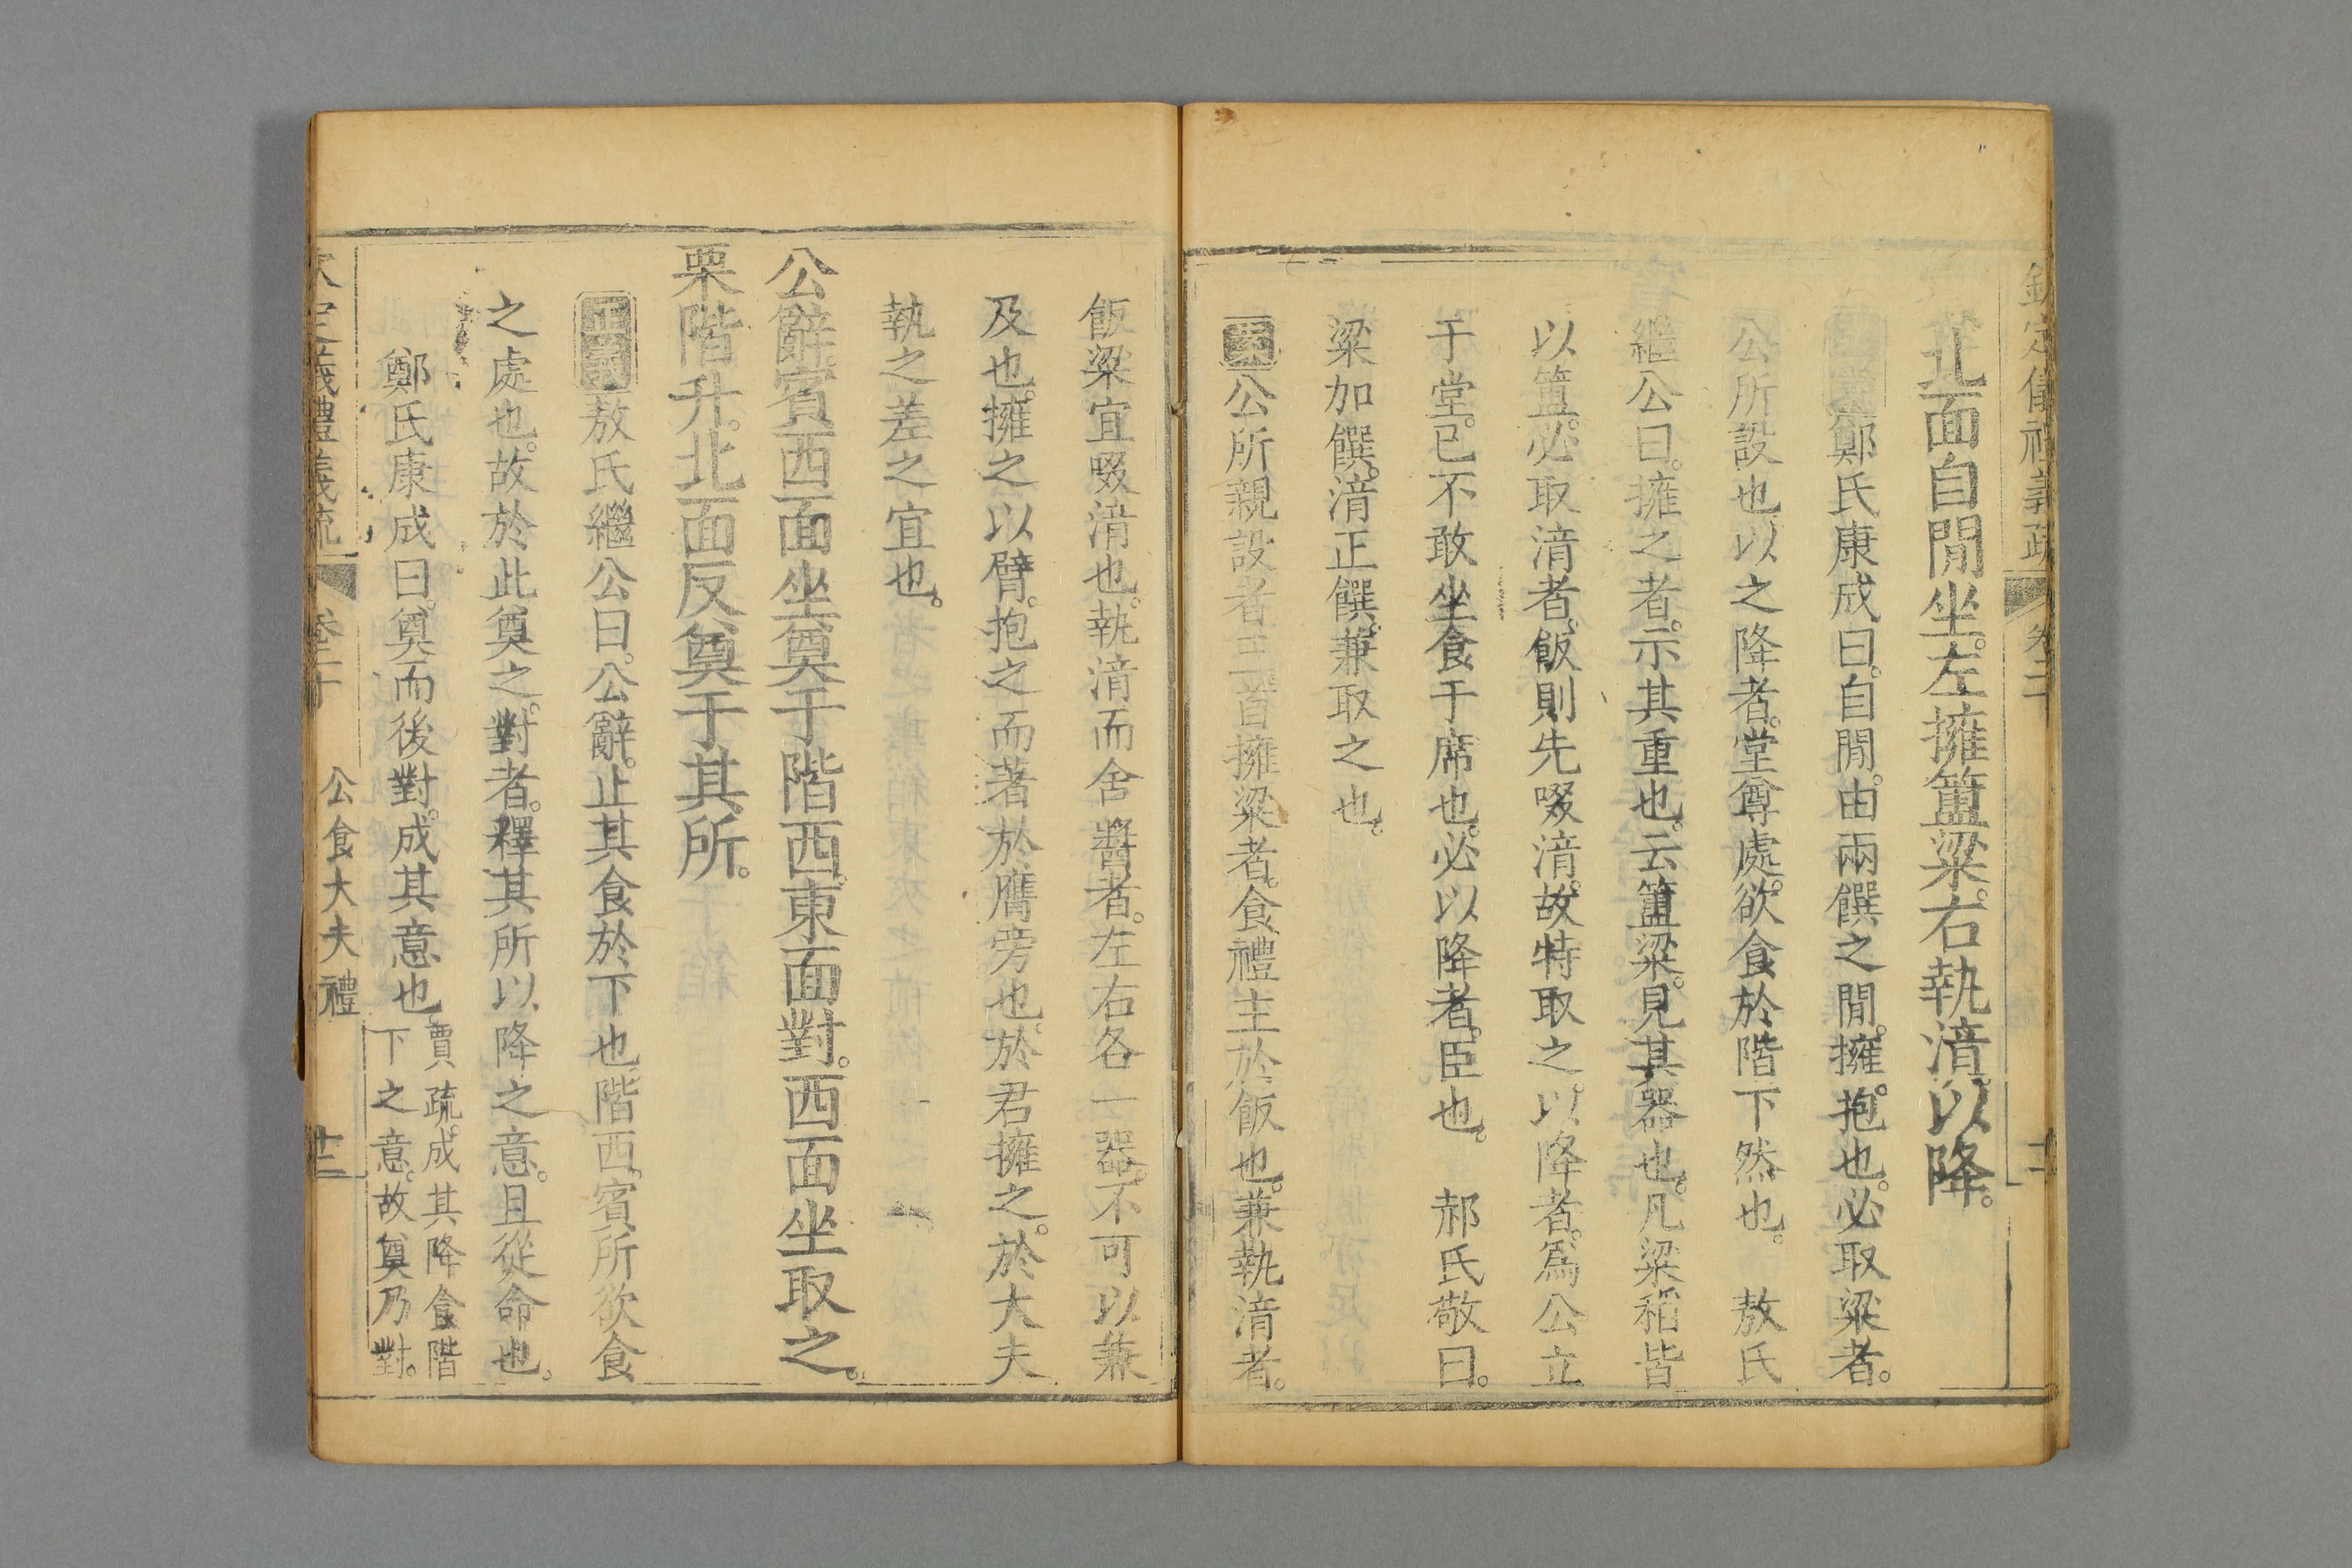 欽定儀禮義疏 卷二十
北面自閒坐。左擁簠粱。右執湆。以降。
鄭氏康成曰。自閒。由兩饌之閒。擁。抱也。必取粱者。
公所設也。以之降者。堂尊處。欲食於階下然也。 敖氏
繼公曰。擁之者。示其重也。云簠粱。見其器也。凡粱稻皆
以簠。必取湆者。飯則先啜湆。故特取之。以降者。爲公立
于堂。已不敢坐食于席也。必以降者。臣也。 郝氏敬曰。
粱加饌。湆正饌。兼取之也。
案公所親設者三。首擁粱者。食禮主於飯也。兼執湆者。
飯粱宜啜湆也。執湆而舍醬者。左右各一器。不可以兼
及也。擁之以臂。抱之而著於膺旁也。於君擁之。於大夫
執之差之宜也。
公辭。賓西面坐奠于階西。東面對。西面坐取之。
栗階升。北面反奠于其所。
正義敖氏繼公曰。公辭。止其食於下也。階西。賓所欲食
之處也。故於此奠之。對者。釋其所以降之意。且從命也。
鄭氏康成曰。奠而後對。成其意也。賈疏。成其降食階
下之意。故奠乃對。
欽定儀禮義疏 卷二十 公食大夫禮 十二